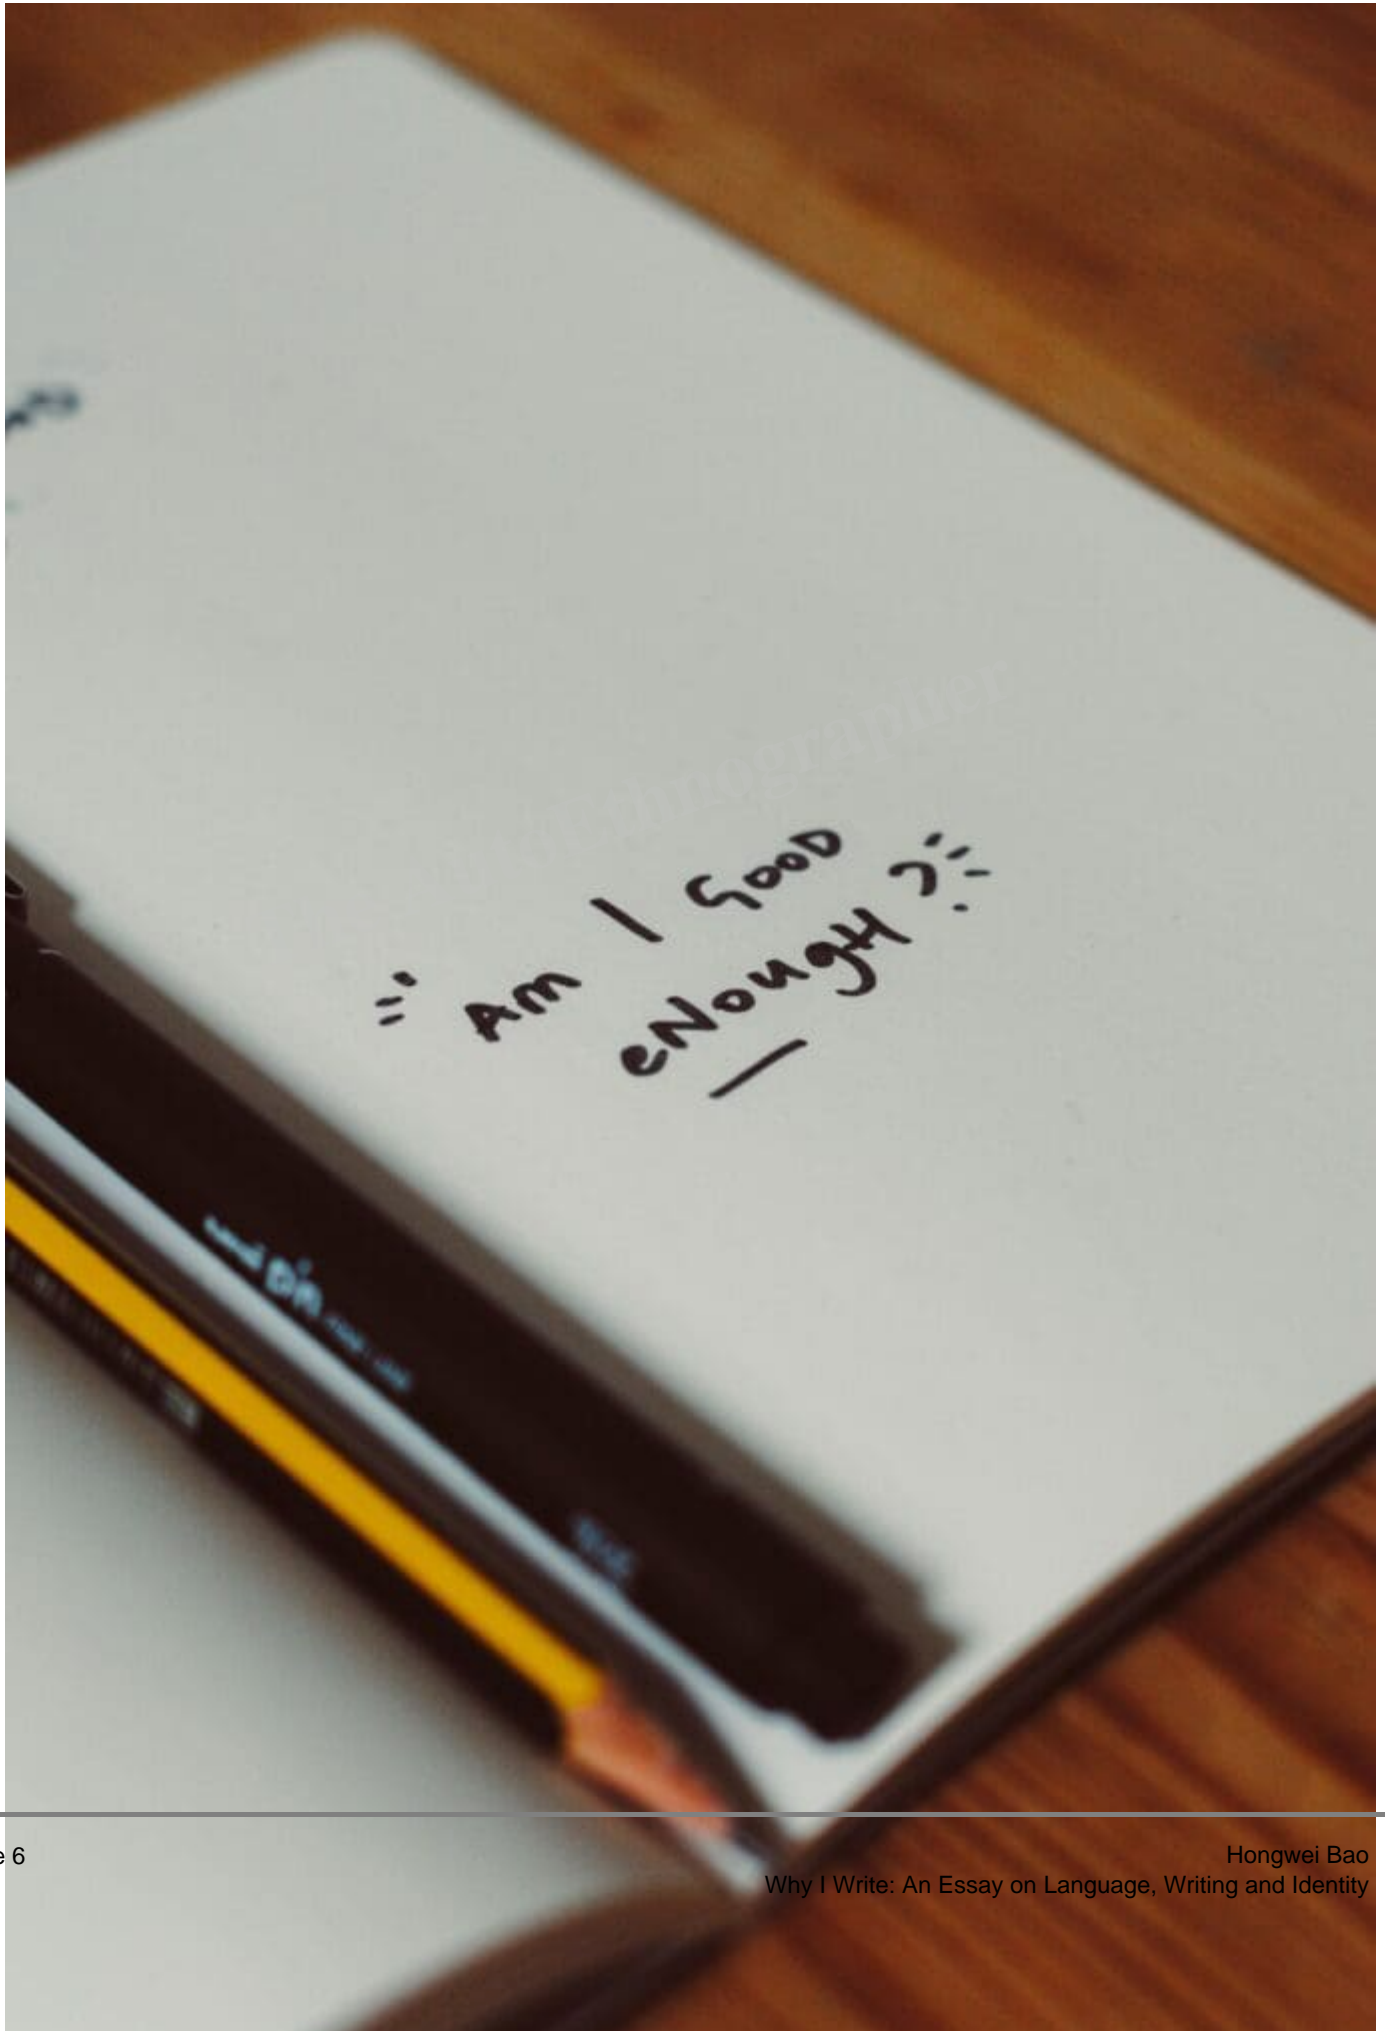 Am I GooD
eNougH?
uni pin
e 6
Hongwei Bao
Why I Write: An Essay on Language, Writing and Identity